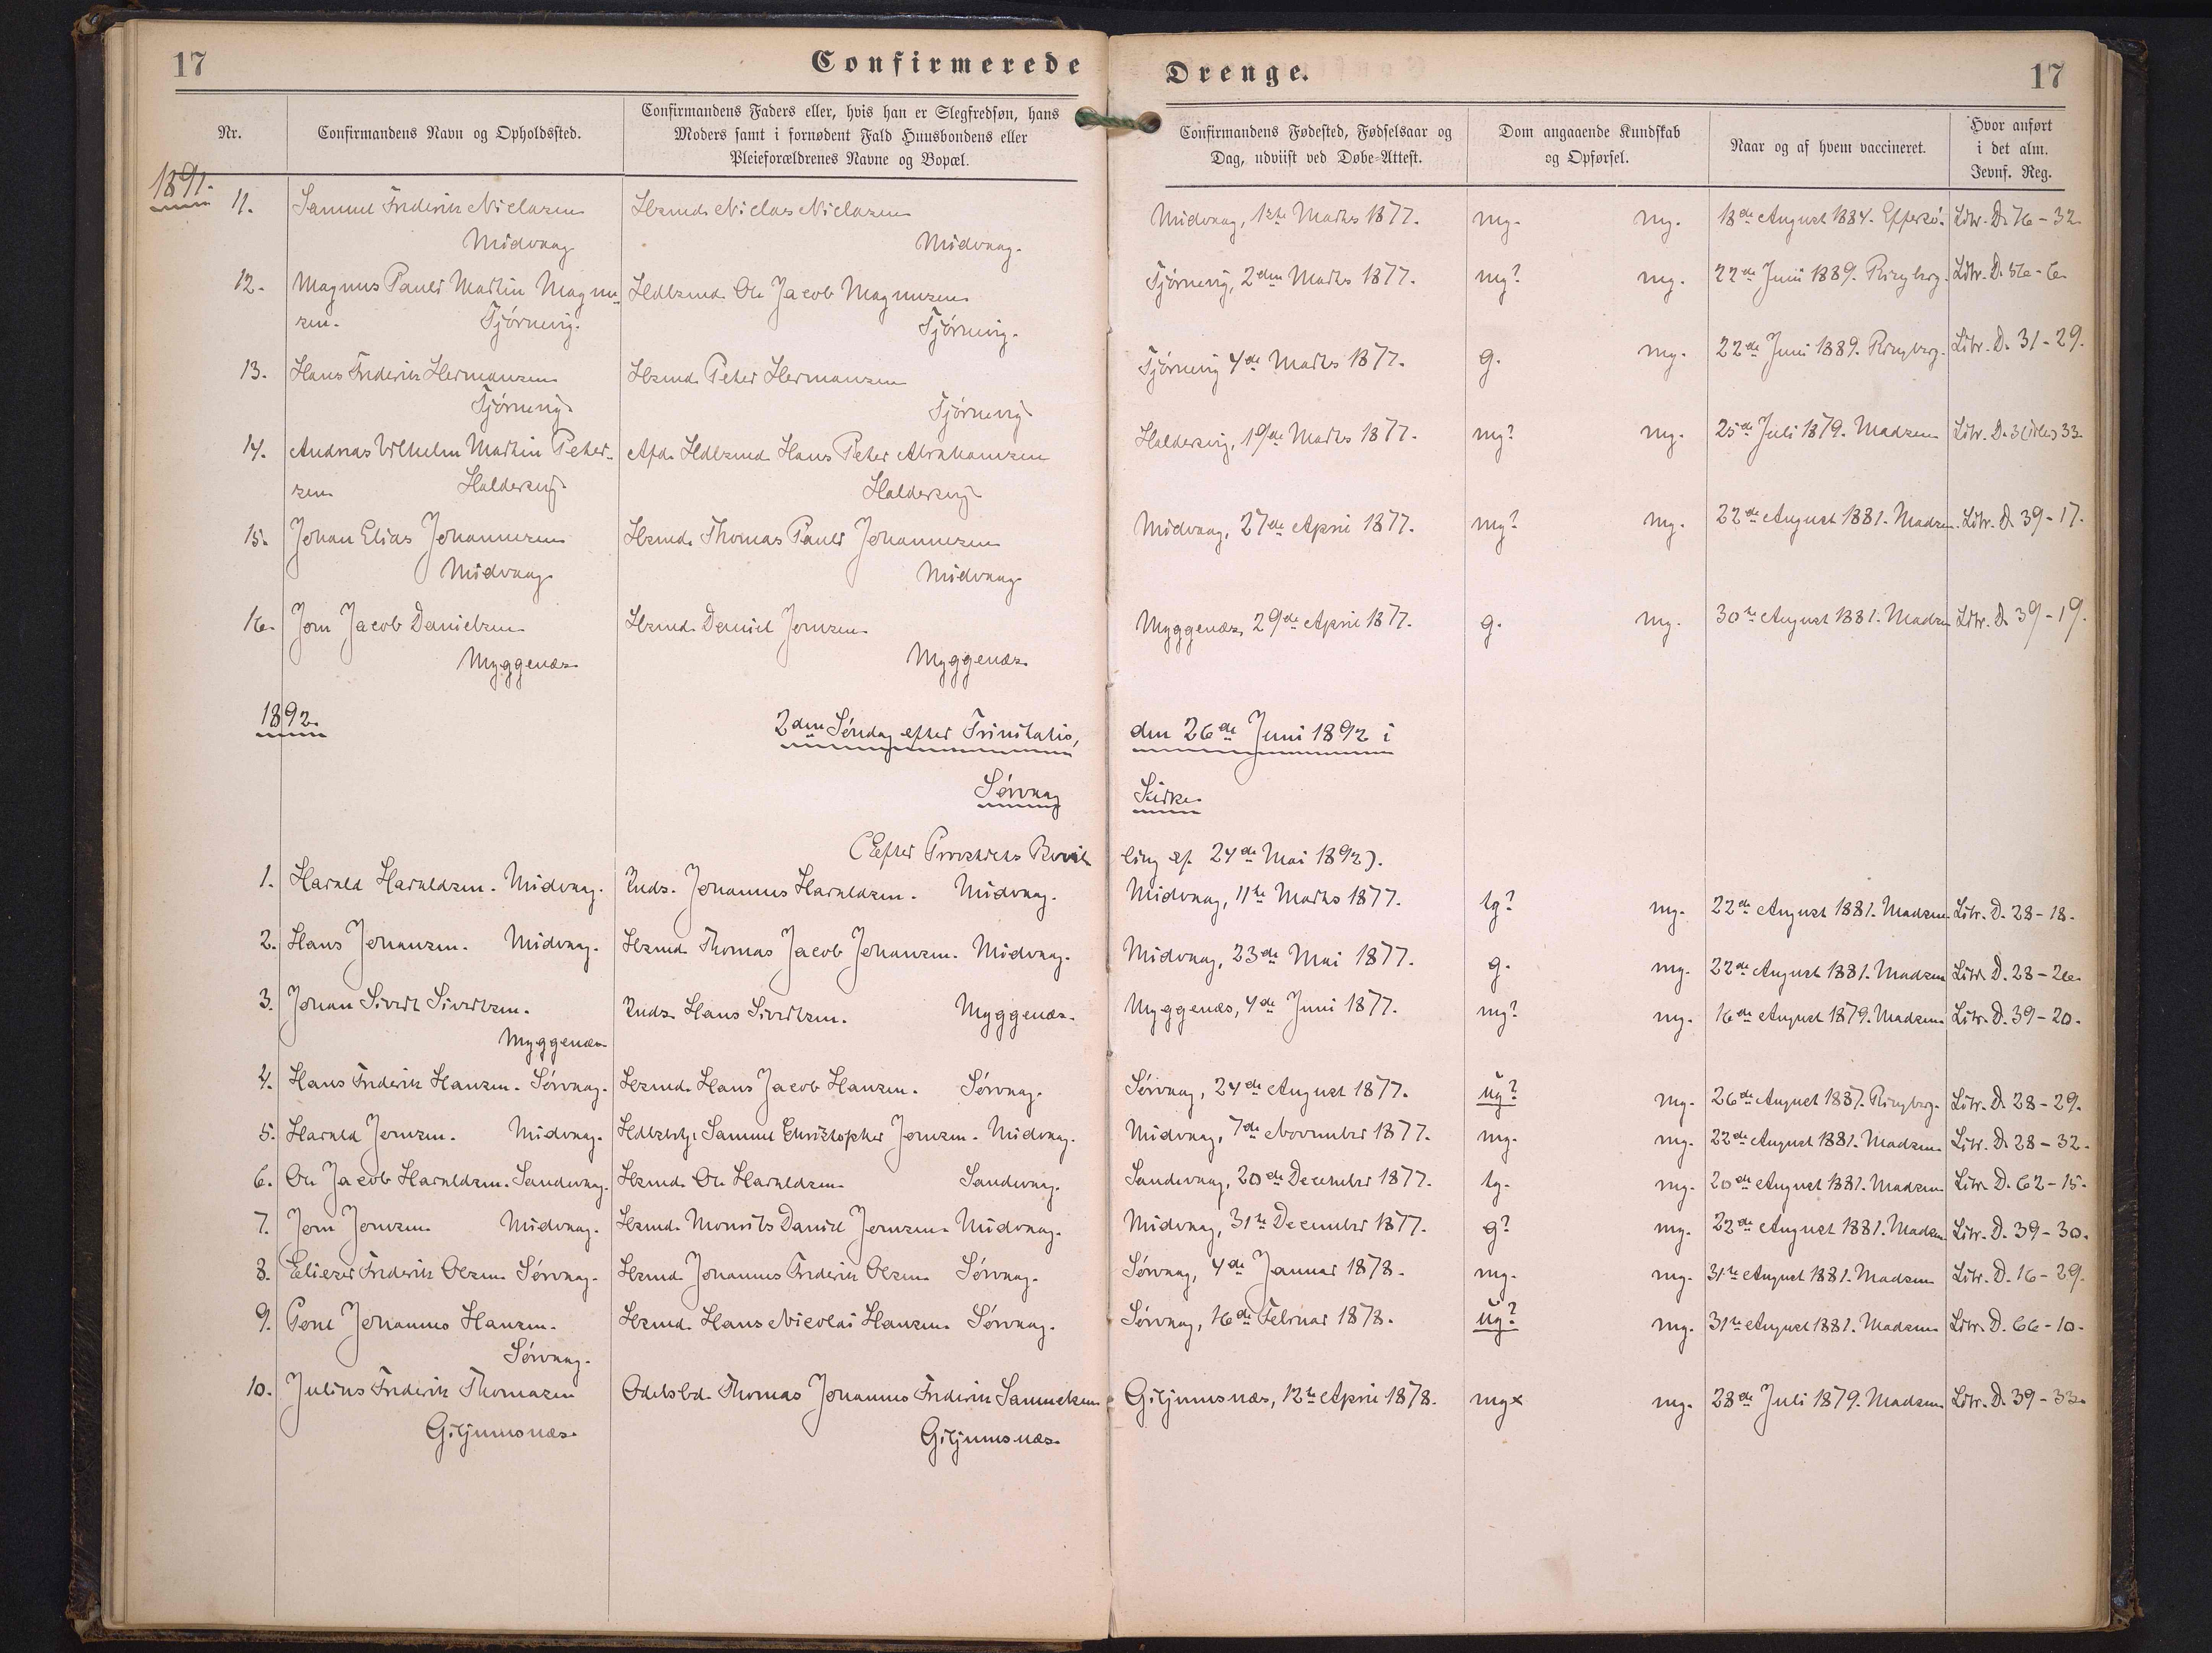 17
Confirmerede
Drenge.
17
Nr.
Confirmandens Navn og Opholdssted.
Confirmandens Faders eller, hvis han er Slegfredsøn, hans
Moders samt i fornødent Fald Huusbondens eller
Pleieforældrenes Navne og Bopæl.
Confirmandens Fødested, Fødselsaar og
Dag, udviist ved Døbe-Attest.
Dom angaaende Kundskab
og Opførsel.
Naar og af hvem vaccineret.
Hvor anført
i det alm.
Jevnf. Reg.
1891.
11. Samuel Frederik Niclasen Hsmd. Niclas Niclasen Midvaag, 1ste Marts 1877. mg. mg. 18de August 1884. Effersö. Litr. D. 76-32.
Midvaag Midvaag.
12. Magnus Pauli Martin Magnu Hdlsmd. Ole Jacob Magnusen Tjörnevig, 2den Marts 1877. mg? mg. 22de Juni 1889. Ringberg. Litr. D. 56-6.
sen. Tjörnevig. Tjörnevig.
13. Hans Frederik Hermansen Hsmd. Peter Hermansen Tjörnevig 4de Marts 1877. g. mg. 22de Juni 1889. Ringberg. Litr. D. 31-29.
Tjörnevig Tjörnevig
14. Andreas Vilhelm Martin Peter- Afd. Hdlsmd. Hans Peter Abrahamsen Haldersvig, 19de Marts 1877. mg? mg. 25de Juli 1879. Madsen Litr. D. 33.
sen Haldersvig Haldersvig
15. Johan Elias Johannesen Hsmd. Thomas Pauli Johannesen Midvaag, 27de April 1877. mg? mg. 22de August 1881. Madsen. Litr. D. 39-17.
Midvaag Midvaag
16. Jom Jacob Danielsen Hsmd. Daniel Joensen Myggenæs, 29de April 1877. g. mg. 30te August 1881. Madsen Litr. D. 39-19.
Myggenæs Myggenæs.
1892. 2den Söndag efter Trinitatis, den 26de Juni 1892 i
Sörvaag Kirke.
(Efter Provstiets Bevil ling af 24de Mai 1892).
1. Harald Haraldsen. Midvaag. Inds. Johannes Haraldsen. Midvaag. Midvaag, 11te Marts 1877. tg? mg. 22de August 1881. Madsen. Litr. D. 28-18.
2. Hans Johansen. Midvaag. Hsmd. Thomas Jacob Johansen. Midvaag. Midvaag, 23de Mai 1877. g. mg. 22de August 1881. Madsen Litr. D. 28-26.
3. Johan Sivert Sivertsen. Inds. Hans Sivertsen. Myggenæs. Myggenæs, 4de Juni 1877. mg? mg. 16de August 1879. Madsen Litr. D. 39-20.
Myggenæs
4. Hans Frederik Hansen. Sörvaag. Hsmd. Hans Jacob Hansen. Sörvaag. Sörvaag, 24de August 1877. ug? mg. 26de August 1887. Ringberg. Litr. D. 28-29.
5. Harald Joensen. Midvaag. Samuel Christopher Joensen. Midvaag. Midvaag, 7de November 1877. mg. mg. 22de August 1881. Madsen. Litr. D. 28-32.
6. Ole Jacob Haraldsen. Sandevaag. Hsmd. Ole Haraldsen Sandevaag. Sandevaag, 20de December 1877. tg. mg. 20de August 1881. Madsen Litr. D. 62-15.
7. Joen Joensen Midvaag. Hsmd. Mourits Daniel Joensen. Midvaag. Midvaag, 31te December 1877. g? mg. 22de August 1881. Madsen. Litr. D. 39-30.
8. Eliezer Frederik Olsen Sörvaag. Hsmd. Johannes Frederik Olsen Sörvaag. Sörvaag, 4de Januar 1878. mg. mg. 31te August 1881. Madsen Litr. D. 16-29.
9. Poul Johannes Hansen. Hsmd. Hans Nicolai Hansen. Sörvaag. Sörvaag, 16de Februar 1878. ug? mg. 31te August 1881. Madsen Litr. D. 66-10.
Sörvaag.
10. Julius Frederik Thomasen Odelsbd. Thomas Johannes Frederik Samuelsen Giljumsnæs, 12te April 1878. mg× mg. 28de Juli 1879. Madsen Litr. D. 39-33.
Giljumsnæs. Giljumsnæs.